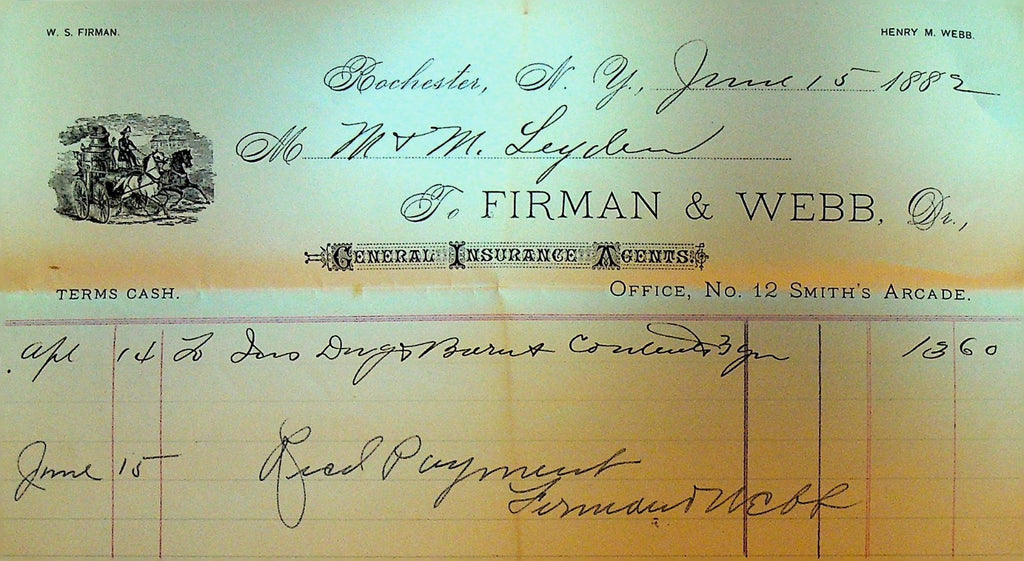 W. S. FIRMAN.
HENRY M. WEBB.
Rochester, N. Y., June 15 1882
M M & M. Leyden
To FIRMAN & WEBB, Dr.,
GENERAL INSURANCE AGENTS.
TERMS CASH.
OFFICE, No. 12 SMITH'S ARCADE.
Apl 14 To Ins Barn & Contents 3 yr 13 60
June 15 Recd Payment
Firman & Webb